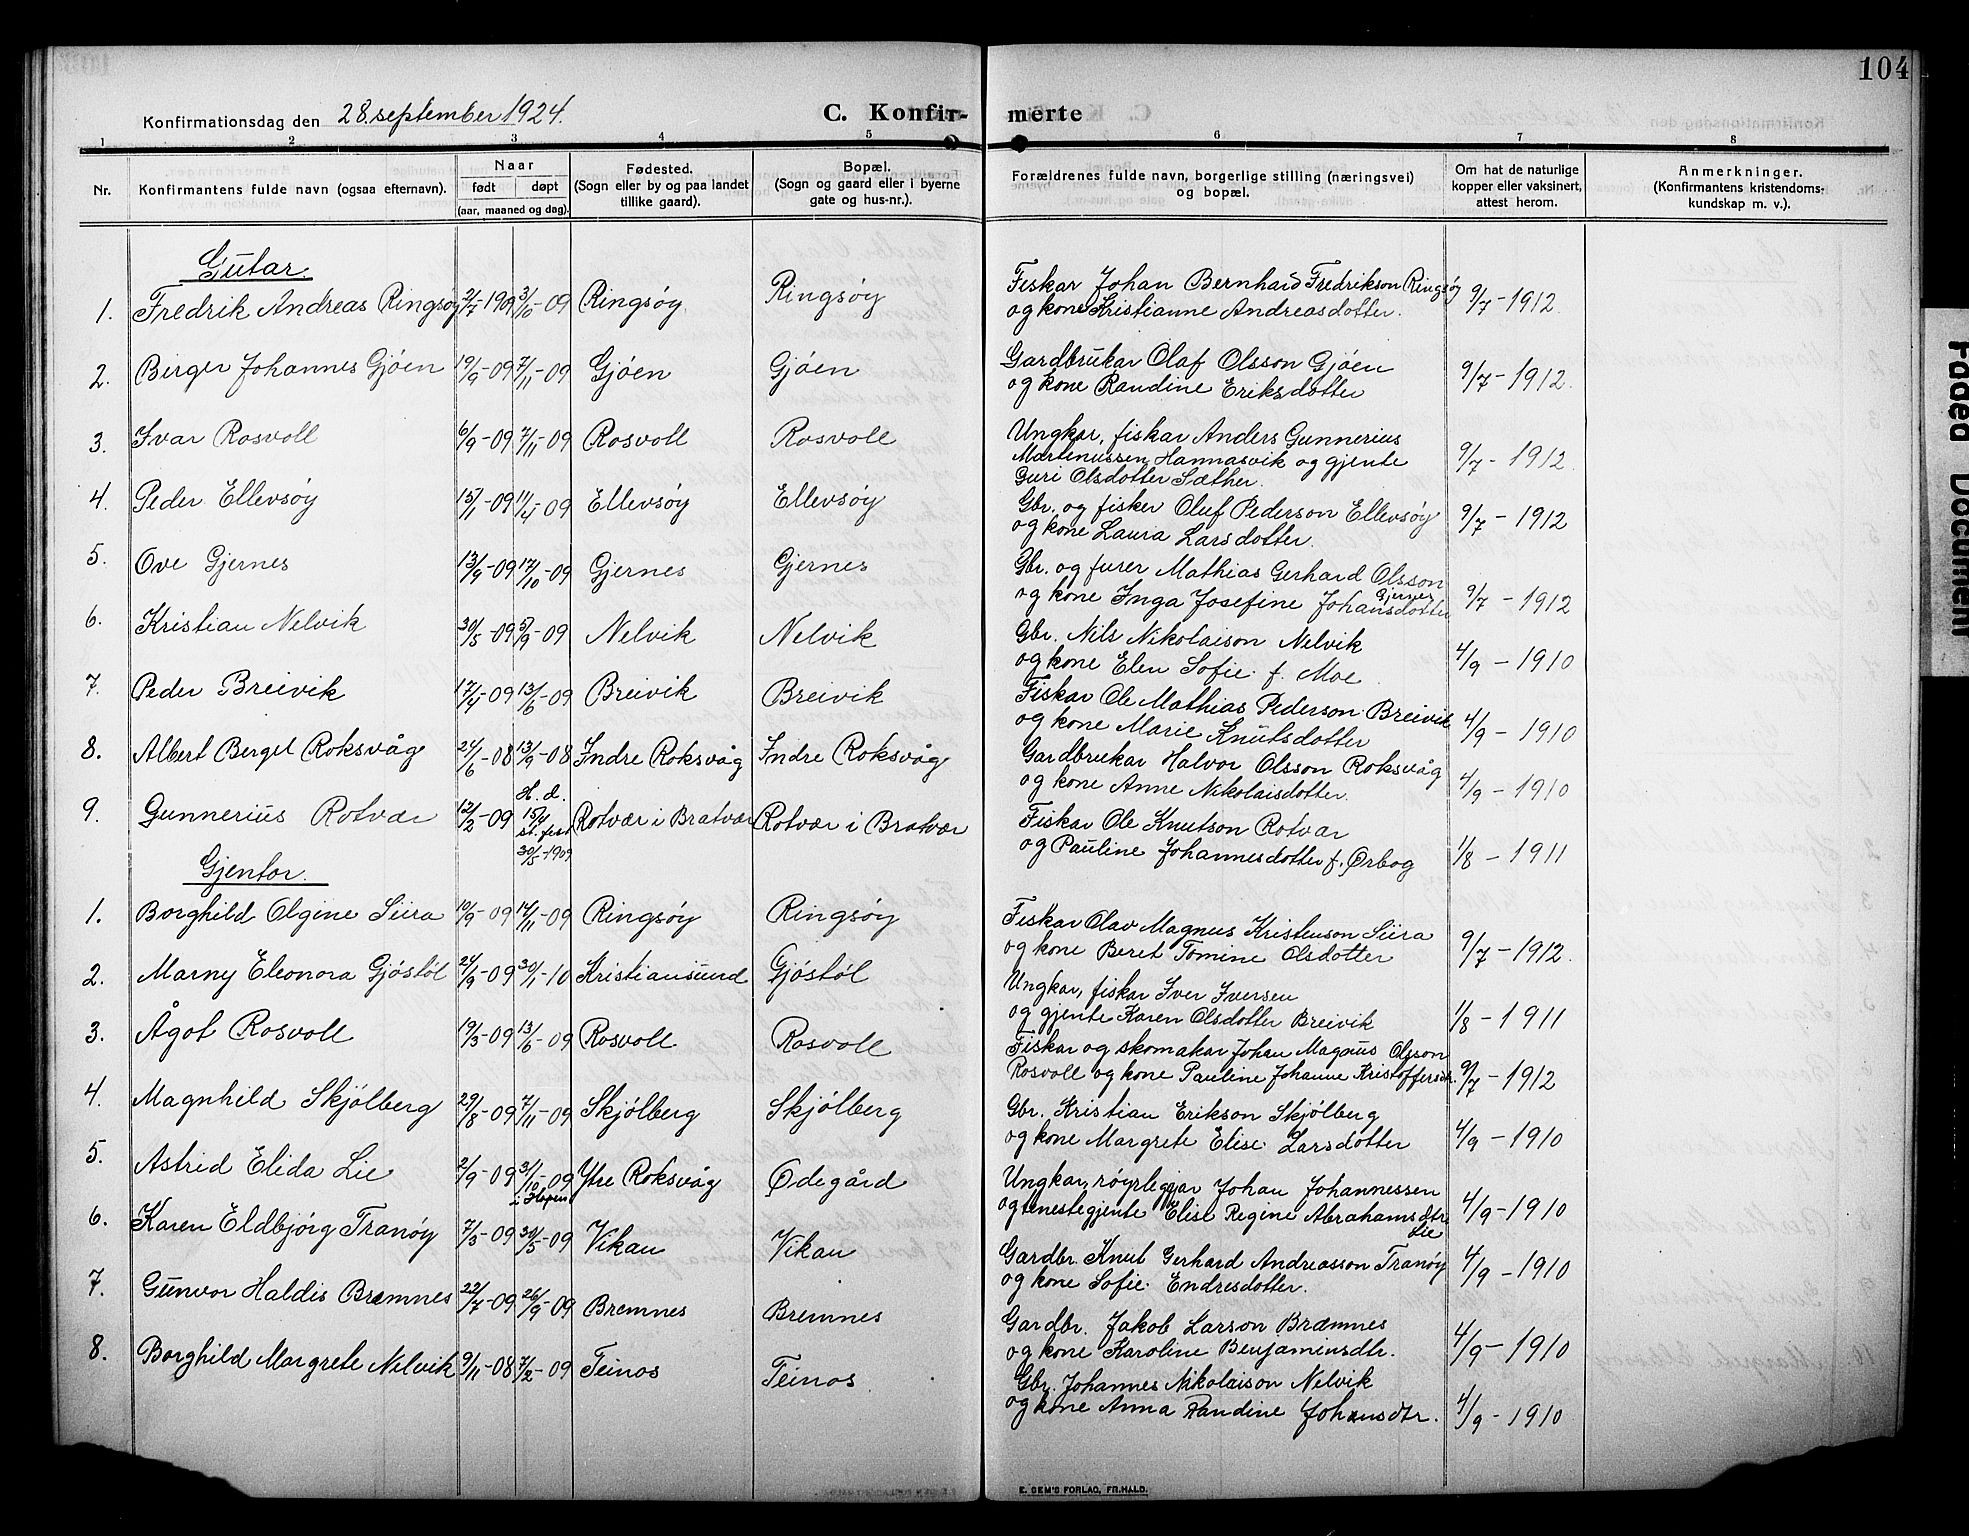 104
Konfirmationsdag den 28. september 1924.
C. Konfir- merte
1 2 3 4 5 6 7 8
Nr.
Konfirmantens fulde navn (ogsaa efternavn).
Naar
født døpt
(aar, maaned og dag).
Fødested.
(Sogn eller by og paa landet
tillike gaard).
Bopæl.
(Sogn og gaard eller i byerne
gate og hus-nr.).
Forældrenes fulde navn, borgerlige stilling (næringsvei)
og bopæl.
Om hat de naturlige
kopper eller vaksinert,
attest herom.
Anmerkninger.
(Konfirmantens kristendoms-
kundskap m. v.).
Gutar.
1. Fredrik Andreas Ringsøy 2/7-1909 3/10-09 Ringsøy Ringsøy Fiskar Johan Bernhard Fredrikson Ringsøy
og kone Kristianne Andreasdotter. 9/7-1912.
2. Birger Johannes Gjøen 19/9-09 7/11-09 Gjøen Gjøen Gardbrukar Olaf Olsson Gjøen
og kone Randine Eriksdotter 9/7-1912.
3. Ivar Rosvoll 6/9-09 7/11-09 Rosvoll Rosvoll Ungkar, fiskar Anders Gunnerius
Martenussen Hannasvik og gjente
Guri Olsdotter Sæther. 9/7-1912.
4. Peder Ellevsøy 15/1-09 11/4-09 Ellevsøy Ellevsøy Gbr. og fisker Oluf Pederson Ellevsøy
og kone Laura Larsdotter. 9/7-1912
5. Ove Gjernes 13/9-09 17/10-09 Gjernes Gjernes Gbr. og furer Mathias Gerhard Olsson
Gjernes
og kone Inga Josefine Johansdotter 9/7-1912
6. Kristian Nelvik 30/5-09 5/9-09 Nelvik Nelvik Gbr. Nils Nikolaison Nelvik
og kone Elen Sofie f. Moe 4/9-1910
7. Peder Breivik 17/4-09 13/6-09 Breivik Breivik Fiskar Ole Mathias Pederson Breivik
og kone Marie Knutsdotter 4/9-1910
8. Albert Berget Roksvåg 24/6-08 13/9-08 Indre Roksvåg Indre Roksvåg Gardbrukar Halvor Olsson Roksvåg
og kone Anne Nikolaisdotter. 4/9-1910
9. Gunnerius Rotvær 12/2-09 H. d. 15/4 st. fest 30/5-1909 Rotvær i Bratvær Rotvær i Bratvær Fiskar Ole Knutson Rotvær
og Pauline Johannesdotter f. Ørbog 1/8-1911
Gjentor.
1. Borghild Olgine Siira 10/9-09 14/11-09 Ringsøy Ringsøy Fiskar Olav Magnus Kristenson Siira
og kone Beret Tomine Olsdotter 9/7-1912.
2. Marny Eleonora Gjøstøl 24/9-09 30/1-10 Kristiansund Gjøstøl Ungkar, fiskar Iver Iversen
og gjente Karen Olsdotter Breivik 1/8-1911
3. Ågot Rosvoll 19/3-09 13/6-09 Rosvoll Rosvoll Fiskar og skomakar Johan Magnus Olsson
Rosvoll og kone Pauline Johanne Kristoffersdr. 9/7-1912
4. Magnhild Skjølberg 29/8-09 7/11-09 Skjølberg Skjølberg Gbr. Kristian Erikson Skjølberg
og kone Margrete Elise Larsdotter 4/9-1910
5. Astrid Elida Lie 2/9-09 3/10-09 i Hopen Ytre Roksvåg Ødegård Ungkar, røyrleggjar Johan Johannessen
og tenestegjente Elise Regine Abrahamsdtr.
Lie 4/9-1910
6. Karen Eldbjørg Tranøy 7/3-09 30/5-09 Vikan Vikan Gardbr. Knut Gerhard Andreasson Tranøy
og kone Sofie Endresdotter. 4/9-1910
7. Gunvor Haldis Bremnes 22/7-09 26/9-09 Bremnes Bremnes Gardbr. Jakob Larson Bræmnes
og kone Karoline Benjaminsdtr. 4/9-1910
8. Borghild Margrete Nelvik 9/11-08 7/2-09 Teinos Teinos Gbr. Johannes Nikolaison Nelvik
og kone Anna Randine Johansdtr. 4/9-1910
E. SEM'S FORLAG, FR.HALD.
Faded Document